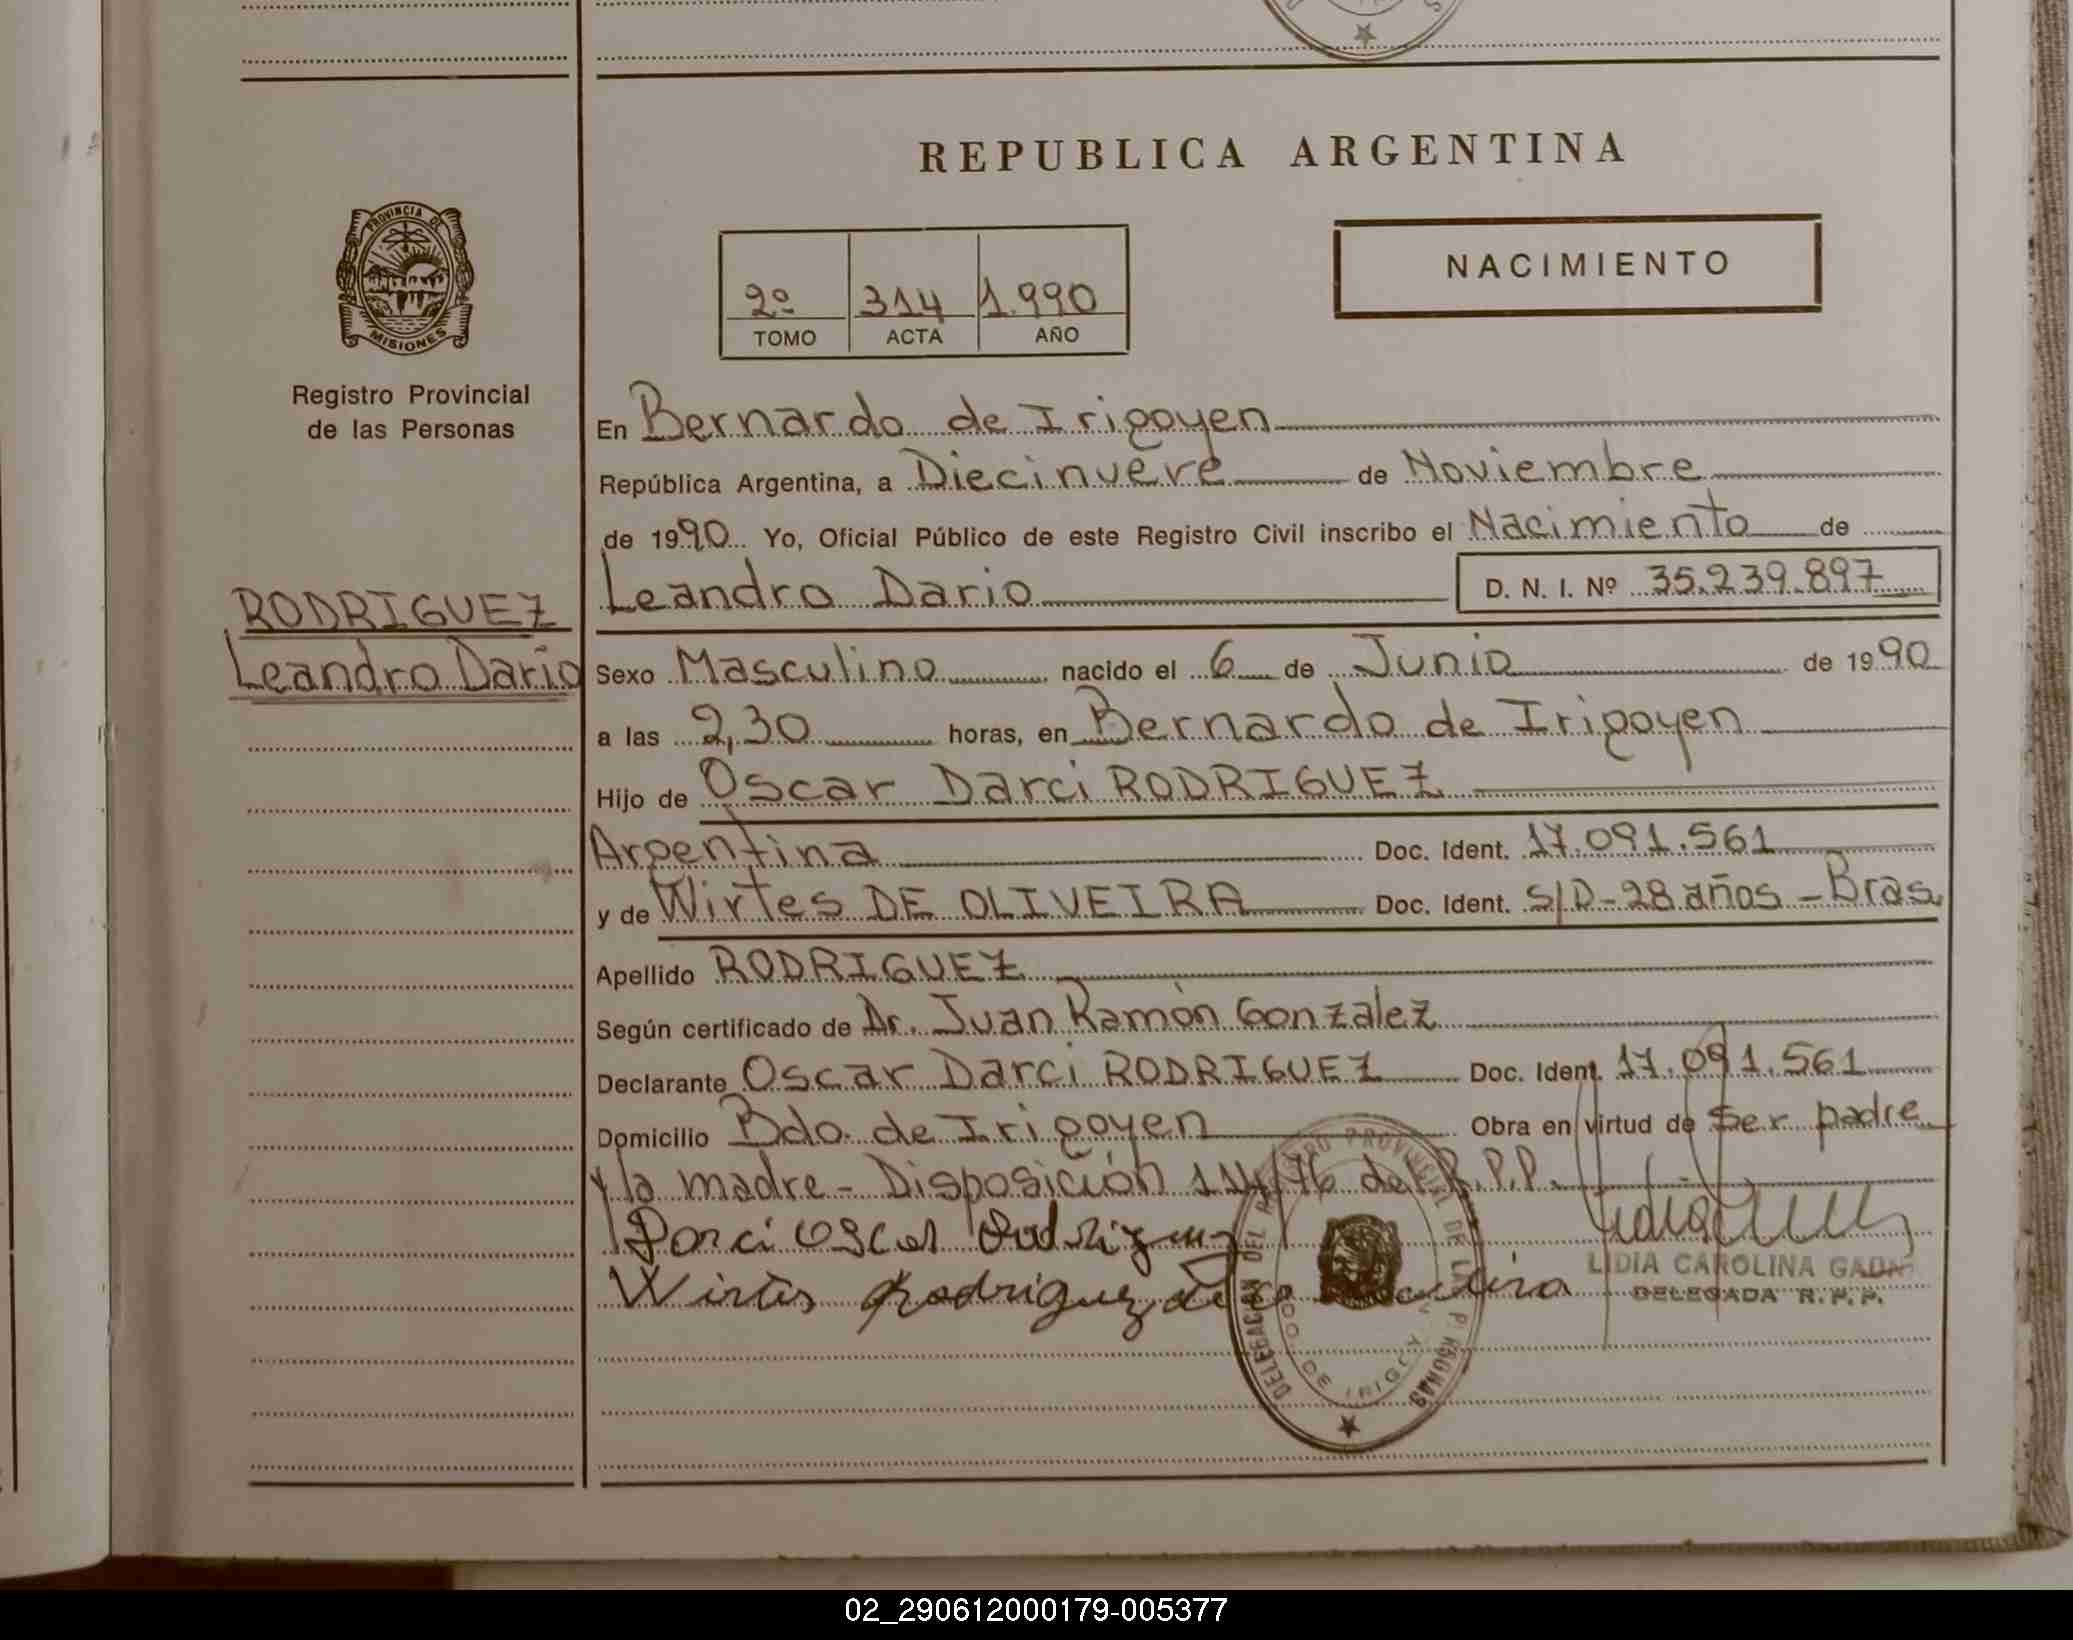 REPUBLICA ARGENTINA
PROVINCIA DE
MISIONES
Registro Provincial
de las Personas
2º 314 1.990
TOMO ACTA AÑO
NACIMIENTO
En Bernardo de Irigoyen
República Argentina, a Diecinueve de Noviembre
de 1990 Yo, Oficial Público de este Registro Civil inscribo el Nacimiento de
RODRIGUEZ
Leandro Dario
Leandro Dario D. N. I. Nº 35.239.897
Sexo Masculino nacido el 6 de Junio de 1990
a las 2,30 horas, en Bernardo de Irigoyen
Hijo de Oscar Darci RODRIGUEZ
Argentina Doc. Ident. 17.091.561
y de Wirtes DE OLIVEIRA Doc. Ident. S/D-28 años - Bras.
Apellido RODRIGUEZ
Según certificado de Dr. Juan Ramón Gonzalez
Declarante Oscar Darci RODRIGUEZ Doc. Ident. 17.091.561
Domicilio Bdo. de Irigoyen Obra en virtud de Ser padre
y la madre - Disposición 114/76 del R.P.P.
Darci Oscar Rodriguez
Wirtes Rodriguez de
LIDIA CAROLINA
DELEGADA R.P.P.
DELEGACION DEL REGISTRO PROVINCIAL DE LAS PERSONAS
BDO. DE IRIGOYEN
02_290612000179-005377